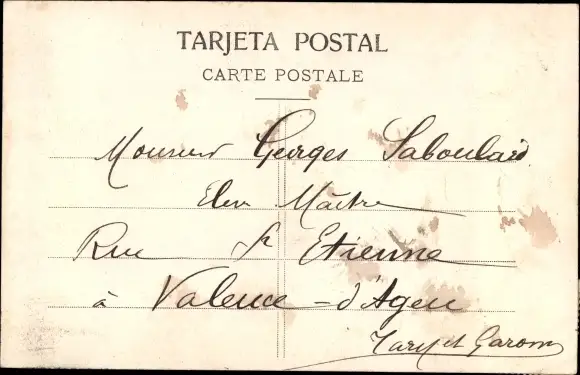 TARJETA POSTAL
CARTE POSTALE
Monsieur Georges Laboulais
Elève Maître
Rue St Etienne
à Valence-d'Agen
Tarn et Garonne